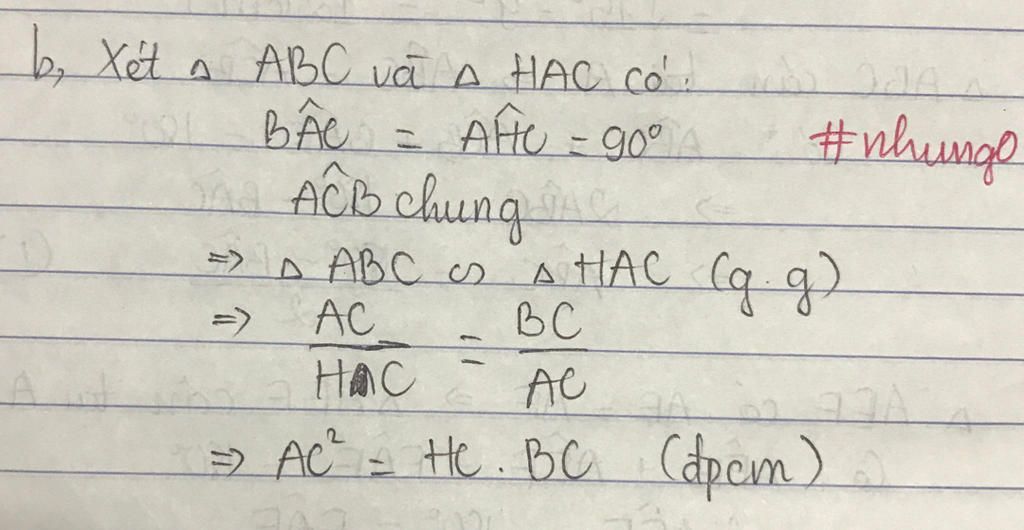 b, Xét △ ABC và △ HAC có:
BÂC = AĤC = 90°
#nhungo
AĈB chung
=> △ ABC ∽ △ HAC (g.g)
=> AC/HC = BC/AC
=> AC² = HC . BC (đpcm)